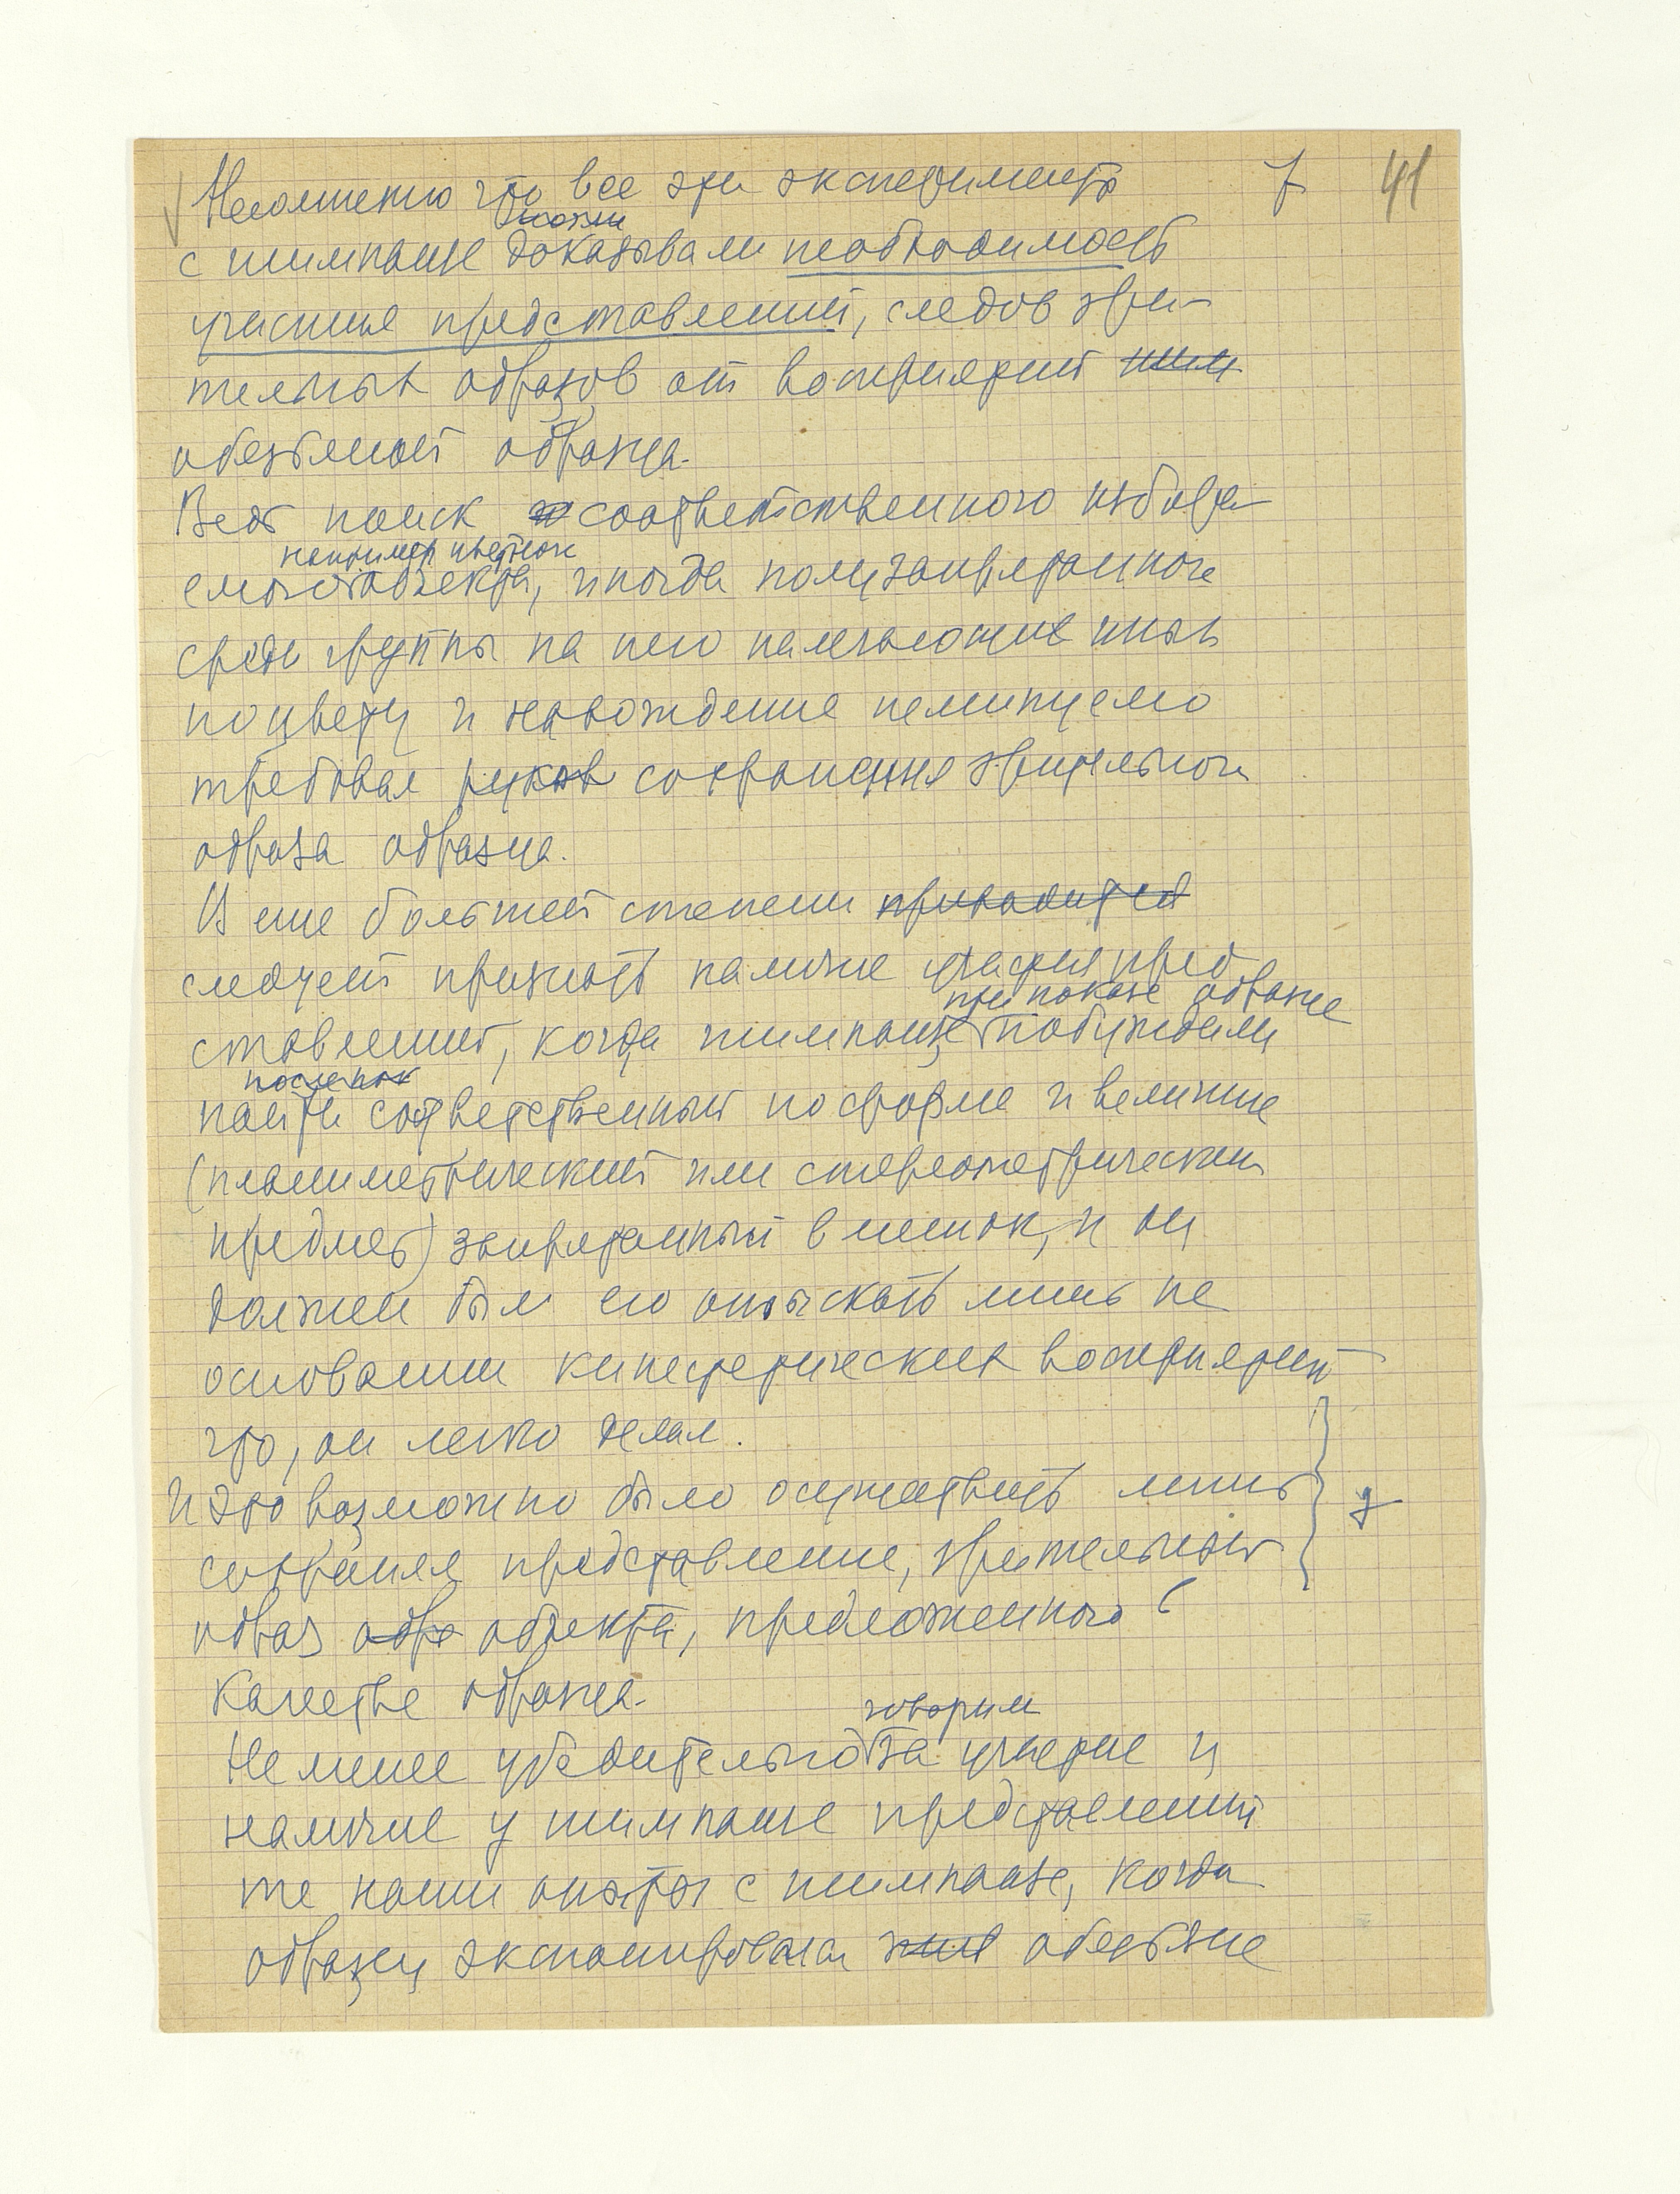 7 41
Несомненно что все эти эксперименты
с шимпанзе доказывали необходимость
участия представлений, следов зри-
тельных образов от восприятий
обезьяной образца.
Ведь поиск соответственного избира-
например цветного
емого объекта, иногда полузапрятанного
среди группы на него налегающих иных
по цвету и нахождение неминуемо
требовал сохранения зрительного
образа образца.
И еще большей степени приводится
следует признать наличие участия пред
при показе образца
ставлений, когда шимпанзе побуждали
найти соответственный по форме и величине
(планиметрический или стереометрический
предмет) запрятанный в мешок, и он
должен был его отыскать лишь на
основании кинестетических восприятий
что, он легко делал.
И это возможно было осуществить лишь
сохраняя представление, зрительный
образ обра объекта, предложенного в
качестве образца.
говорят
Не менее убедительно за участие и
наличие у шимпанзе представлений
те наши опыты с шимпанзе, когда
образец экспонировался обезьяне